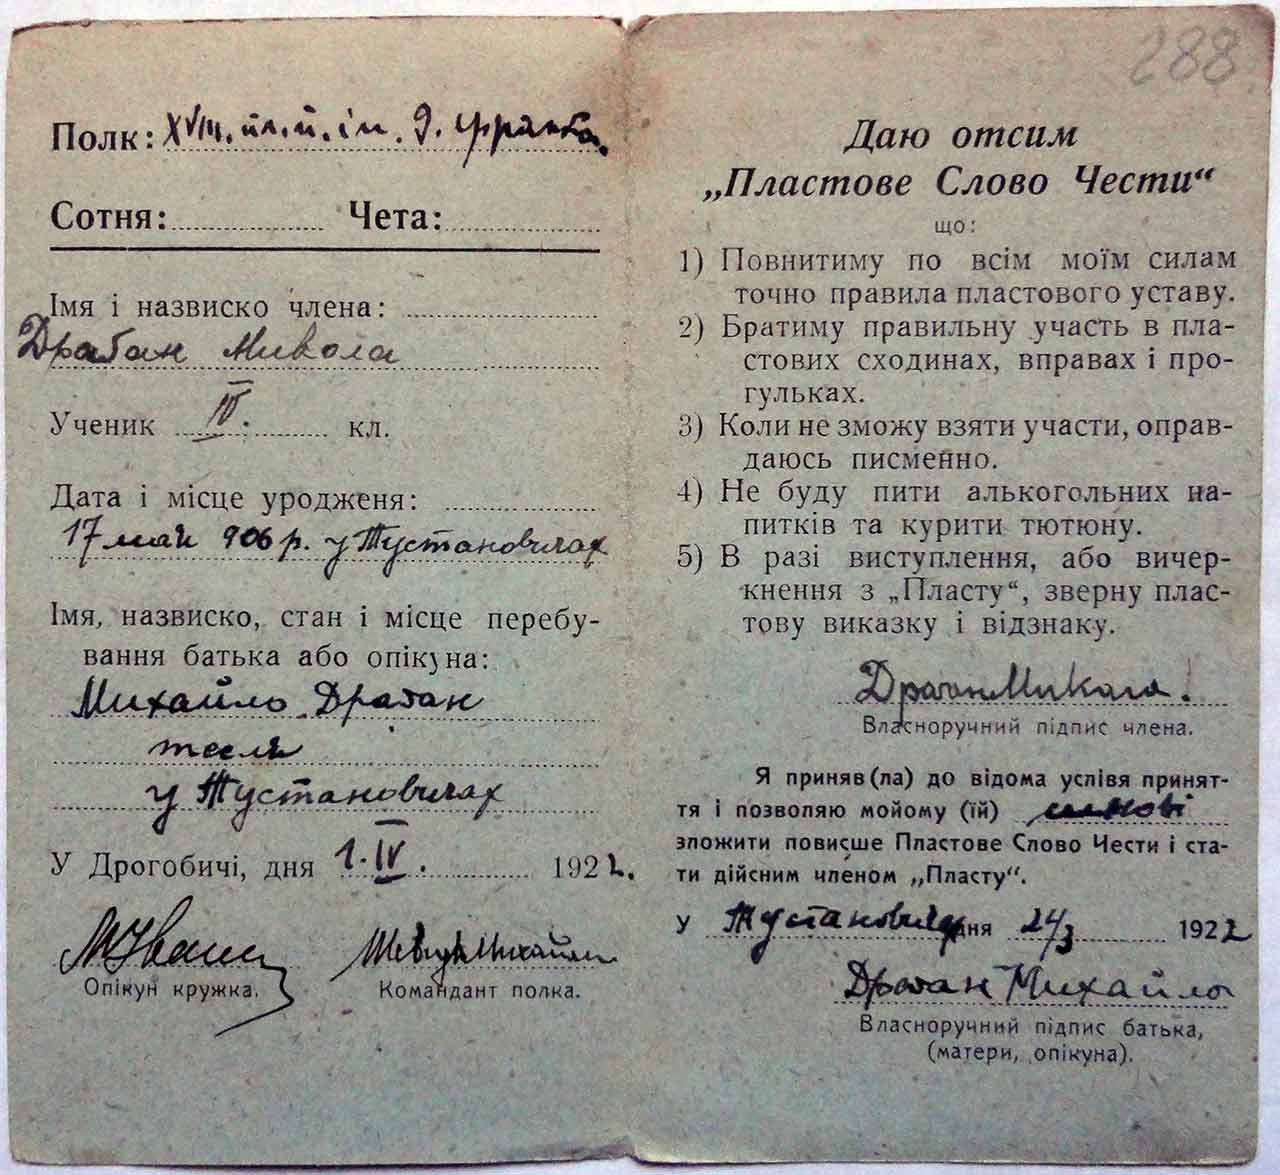 Полк: XVIII. пл. п. ім. І. Франка.
Сотня: Чета:
Імя і назвиско члена:
Драбан Микола
Ученик IV. кл.
Дата і місце уродженя:
17 мая 906 р. у Тустановичах
Імя, назвиско, стан і місце перебу-
вання батька або опікуна:
Михайло Драбан
тесля
у Тустановичах
У Дрогобичі, дня 1.IV. 1922.
Опікун кружка.
Михайло
Командант полка.
288
Даю отсим
„Пластове Слово Чести“
що:
1) Повнитиму по всім моїм силам
точно правила пластового уставу.
2) Братиму правильну участь в пла-
стових сходинах, вправах і про-
гульках.
3) Коли не зможу взяти участи, оправ-
даюсь писменно.
4) Не буду пити алькогольних на-
питків та курити тютюну.
5) В разі виступлення, або вичер-
кнення з „Пласту“, зверну плас-
тову виказку і відзнаку.
Драбан Микола.
Власноручний підпис члена.
Я приняв(ла) до відома услівя принят-
тя і позволяю мойому (їй) синові
зложити повисше Пластове Слово Чести і ста-
ти дійсним членом „Пласту“.
У Тустановичах дня 24/3 1922
Драбан Михайло
Власноручний підпис батька,
(матери, опікуна).